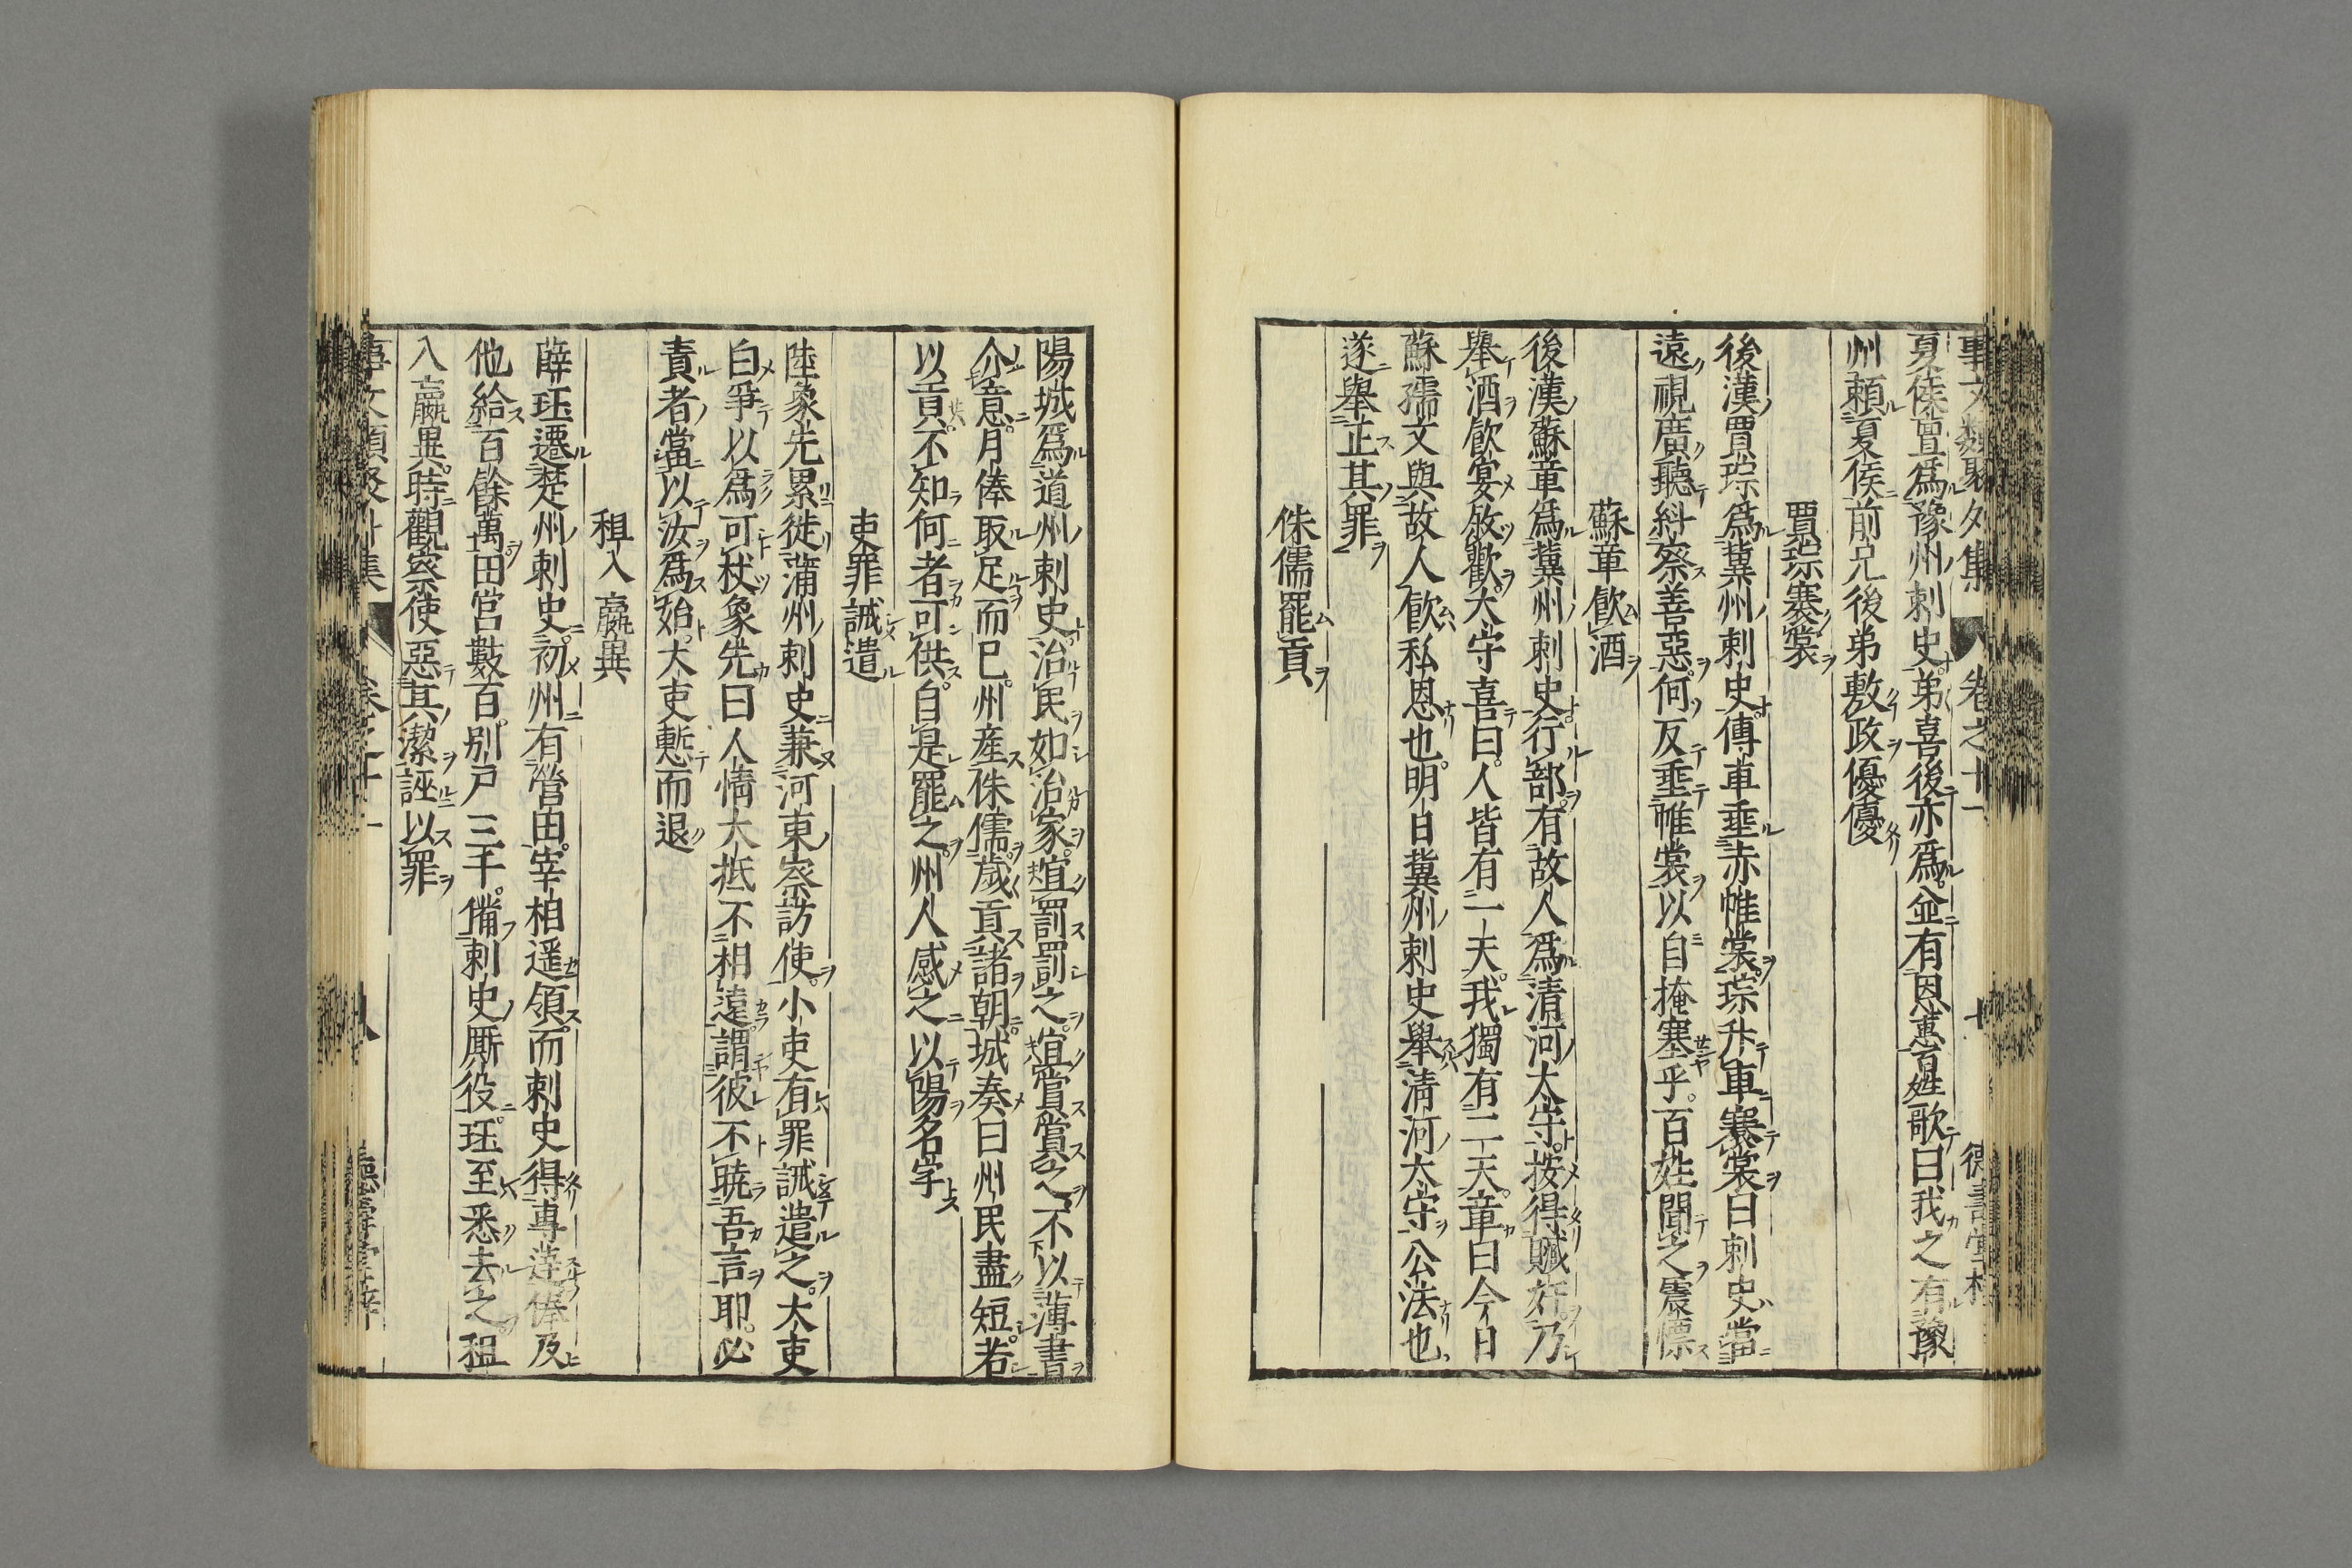 夏侯亶爲豫州刺史弟喜後亦爲並有恩惠百姓歌曰我之有豫
州頼夏侯前兄後弟敷政優優
賈琮褰裳
後漢賈琮爲冀州刺史傳車垂赤帷裳琮升車褰裳曰刺史當
遠視廣聽糾察善惡何反垂帷裳以自掩塞乎百姓聞之震慓
蘇章飮酒
後漢蘇章爲冀州刺史行部有故人爲清河太守按得贓奸乃
舉酒飮宴敘歡太守喜曰人皆有一天我獨有二天章曰今日
蘇孺文與故人飮私恩也明日冀州刺史舉清河太守公法也
遂舉正其罪
侏儒罷貢
陽城爲道州刺史治民如治家宜罰罰之宜賞賞之不以薄書
介意月俸取足而已州産侏儒歳貢諸朝城奏曰州民盡短若
以貢不知何者可供自是罷之州人感之以陽名字
吏罪誡遣
陸象先累徙蒲州刺史兼河東察訪使小吏有罪誡遣之大吏
白爭以爲可杖象先曰人情大抵不相遠謂彼不曉吾言耶必
責者當以汝爲始大吏慙而退
租入贏異
薛珏遷楚州刺史初州有營田宰相遥領而刺史得專達俸及
他給百餘萬田官數百別戸三千備刺史厮役珏至悉去之租
入贏異時觀察使惡其潔誣以罪